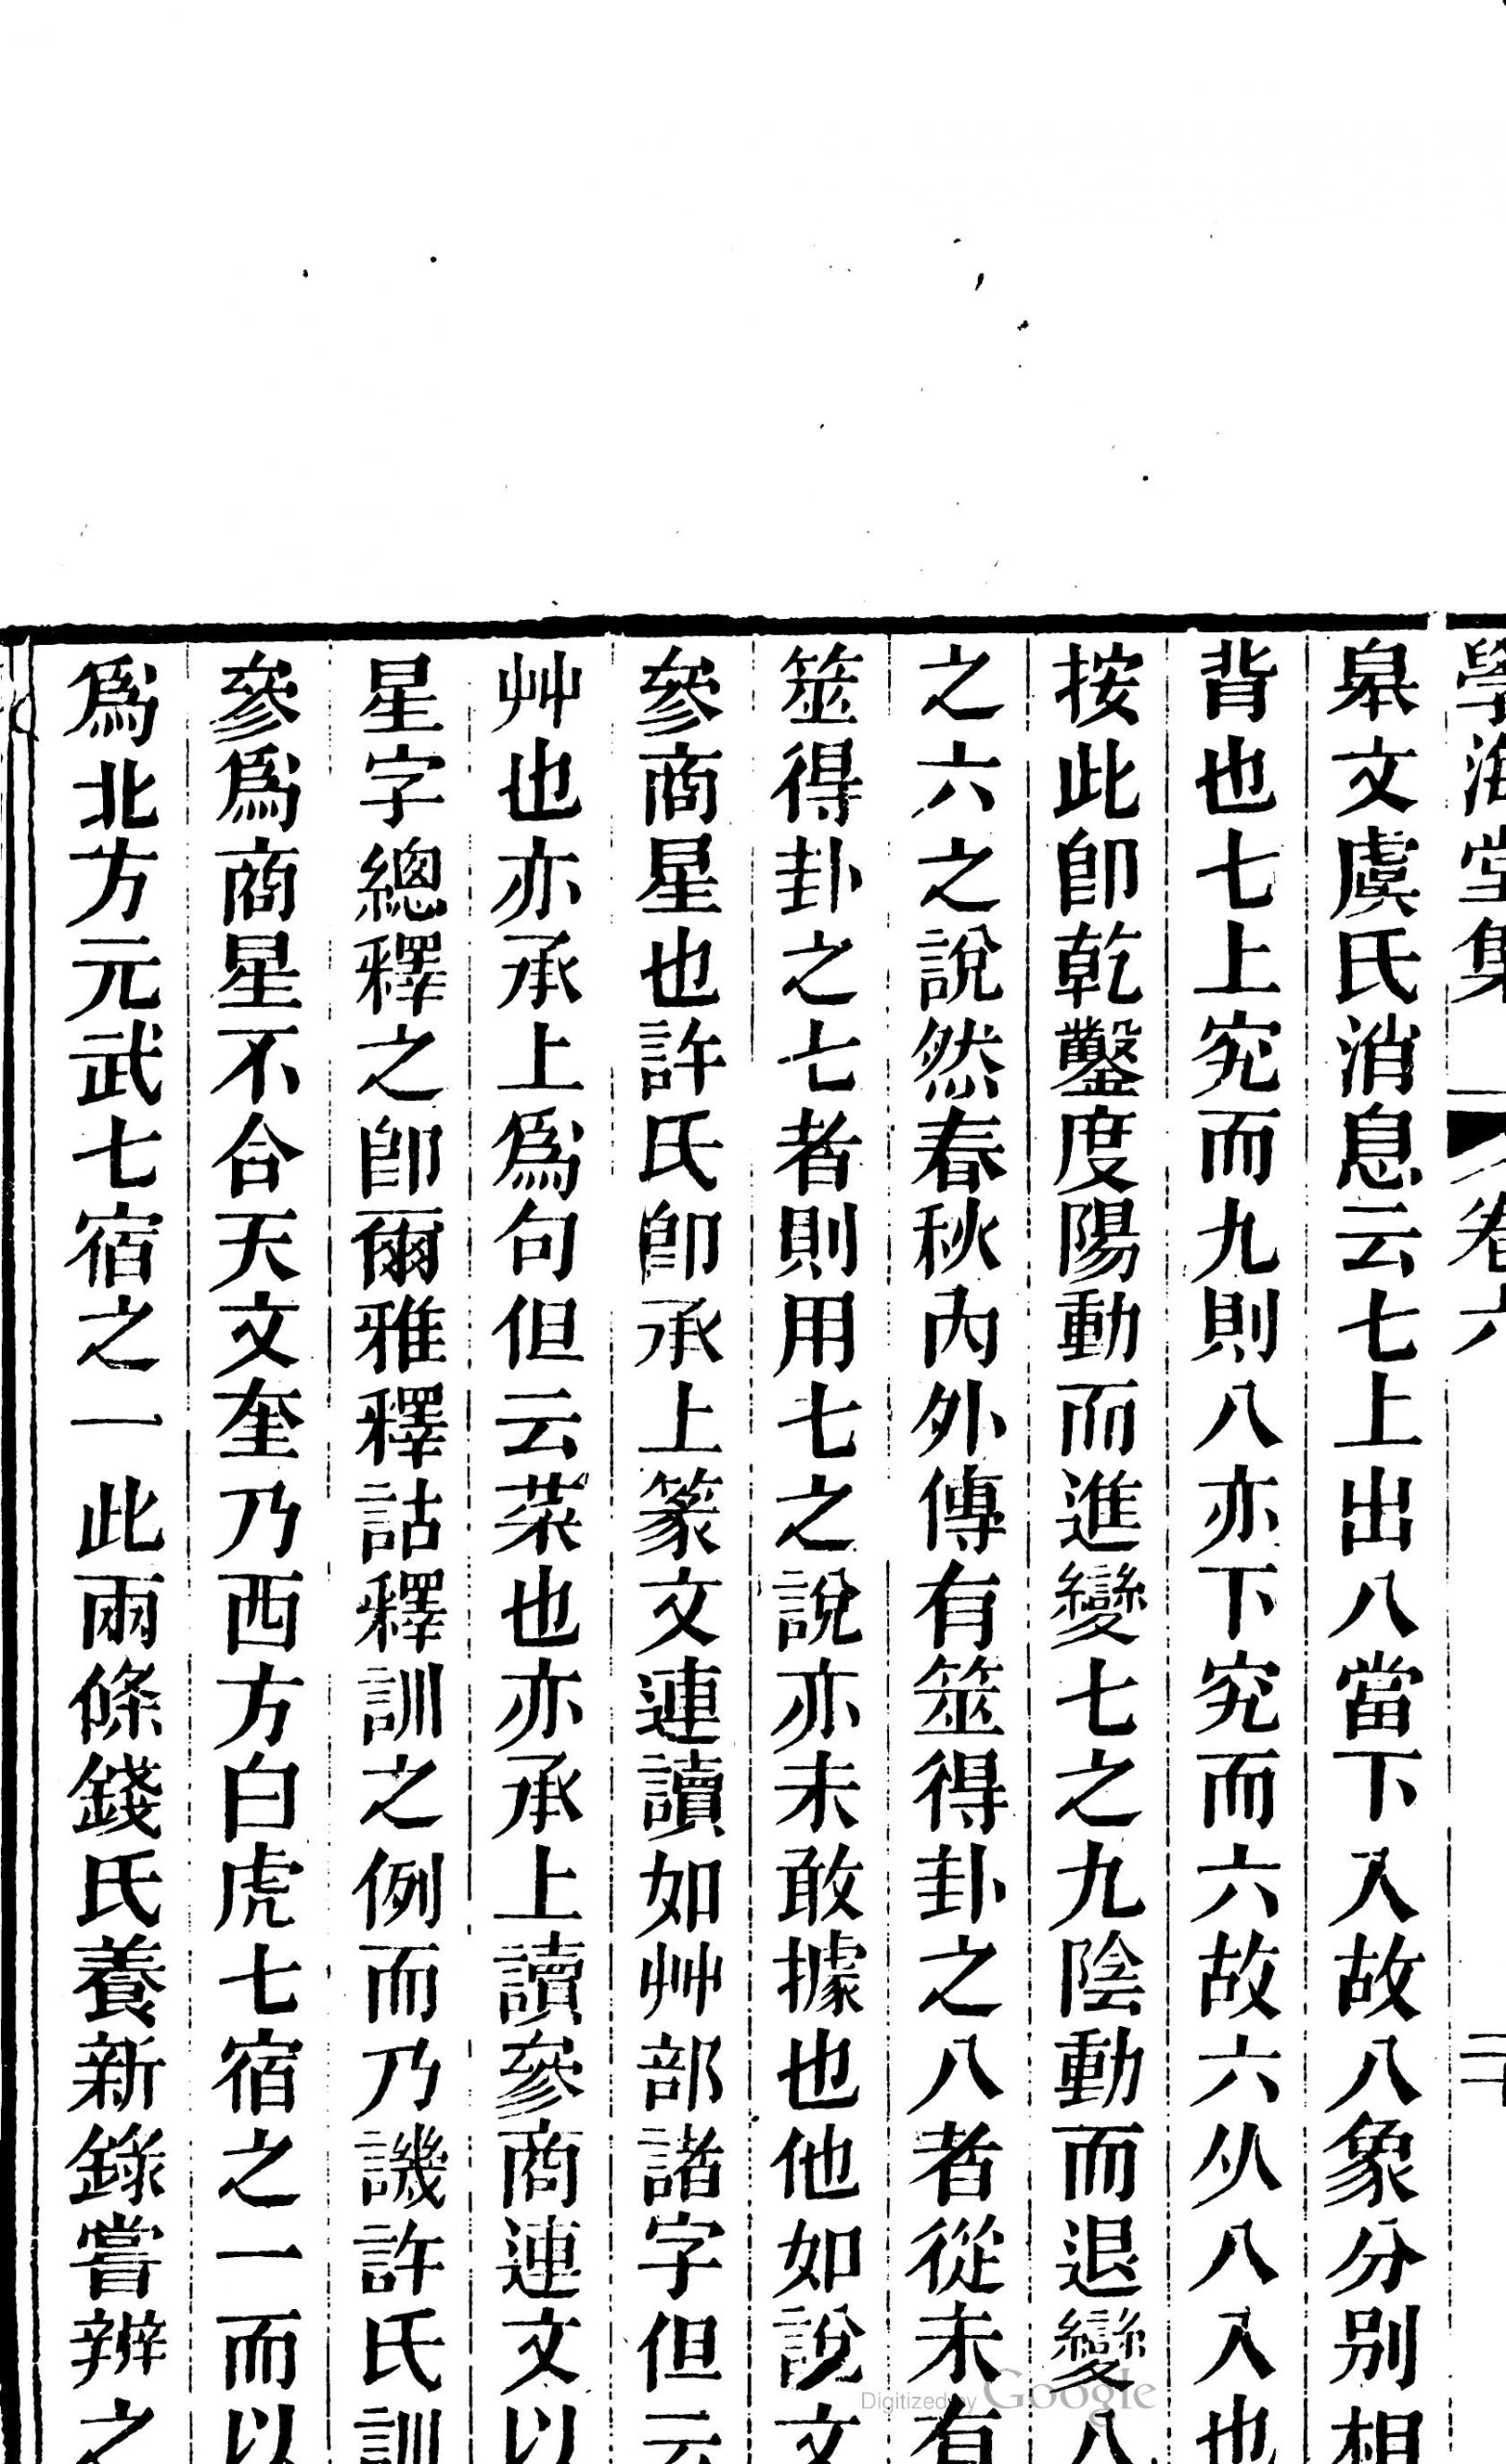 學海堂集
卷六
二十
皐文虞氏消息云七上出八當下入故八象分别相
背也七上究而九則八亦下究而六故六从八入也
按此卽乾鑿度陽動而進變七之九陰動而退變八
之六之說然春秋內外傳有筮得卦之八者從未有
筮得卦之七者則用七之說亦未敢據也他如說文
參商星也許氏卽承上篆文連讀如艸部諸字但云
艸也亦承上爲句但云菜也亦承上讀參商連文以
星字總釋之卽爾雅釋詁釋訓之例而乃譏許氏訓
參爲商星不合天文奎乃西方白虎七宿之一而以
爲北方元武七宿之一此兩條錢氏養新錄嘗辨之
Digitized by Google